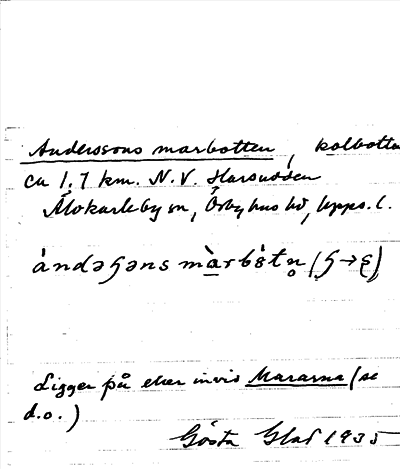 Anderssons marbotten, kolbotten
ca 1,7 km. N.V. Harsudden
Älvkarleby sn, Örbyhus hd, Upps. l.
àndəʂəns màrbòtn̥
Ligger på eller invid Mararna (se
d.o.)
Gösta Glad 1935